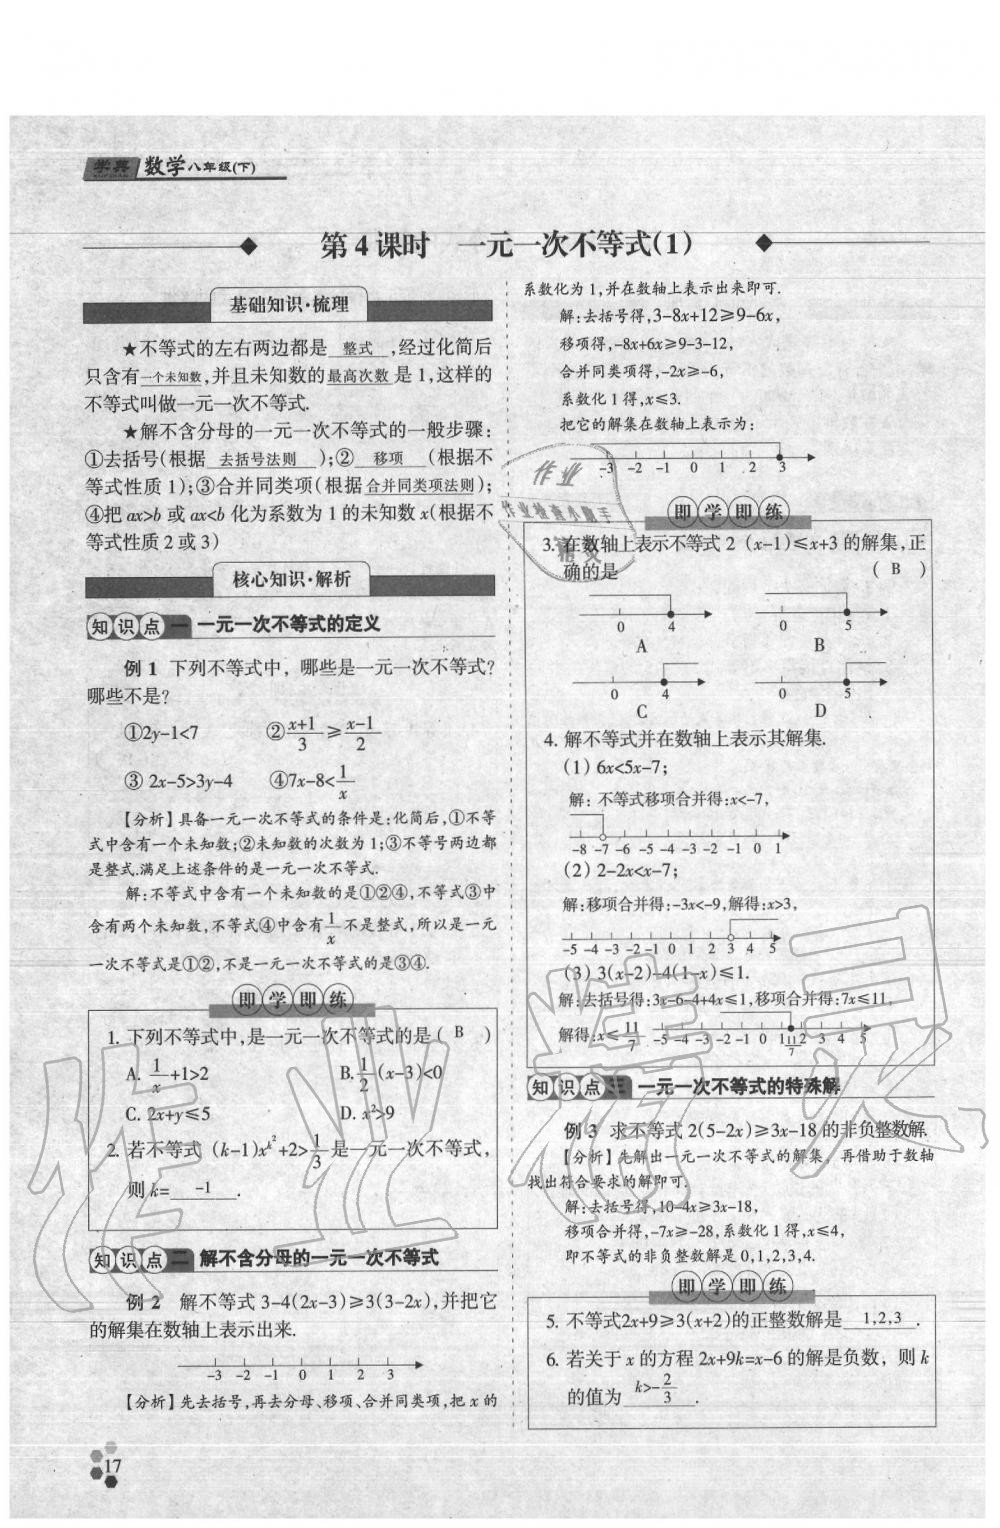 学典 数学八年级(下)
XUEDIAN
第4课时 一元一次不等式(1)
基础知识·梳理
★不等式的左右两边都是 整式 ,经过化简后
只含有一个未知数,并且未知数的最高次数 是1,这样的
不等式叫做一元一次不等式.
★解不含分母的一元一次不等式的一般步骤:
①去括号(根据 去括号法则 );② 移项 (根据不
等式性质1);③合并同类项(根据合并同类项法则);
④把ax>b或ax<b化为系数为1的未知数x(根据不
等式性质2或3)
核心知识·解析
知识点一 一元一次不等式的定义
例1 下列不等式中，哪些是一元一次不等式?
哪些不是?
①2y-1<7 ②(x+1)/3≥(x-1)/2
③ 2x-5>3y-4 ④7x-8<1/x
【分析】具备一元一次不等式的条件是:化简后,①不等
式中含有一个未知数;②未知数的次数为1;③不等号两边都
是整式.满足上述条件的是一元一次不等式.
解:不等式中含有一个未知数的是①②④,不等式③中
含有两个未知数,不等式④中含有1/x不是整式,所以是一元
一次不等式是①②,不是一元一次不等式的是③④.
即学即练
1. 下列不等式中,是一元一次不等式的是( B )
A. 1/x+1>2 B. 1/2(x-3)<0
C. 2x+y≤5 D. x²>9
2. 若不等式 (k-1)x^k²+2>1/3是一元一次不等式,
则k= -1 .
知识点二 解不含分母的一元一次不等式
例2 解不等式3-4(2x-3)≥3(3-2x),并把它
的解集在数轴上表示出来.
-3 -2 -1 0 1 2 3
【分析】先去括号,再去分母、移项、合并同类项,把x的
17
系数化为1,并在数轴上表示出来即可.
解:去括号得,3-8x+12≥9-6x,
移项得,-8x+6x≥9-3-12,
合并同类项得,-2x≥-6,
系数化1得,x≤3.
把它的解集在数轴上表示为:
-3 -2 -1 0 1 2 3
即学即练
3. 在数轴上表示不等式2 (x-1)≤x+3的解集,正
确的是 ( B )
0 4 0 5
A B
0 4 0 5
C D
4. 解不等式并在数轴上表示其解集.
(1) 6x<5x-7;
解: 不等式移项合并得:x<-7,
-8 -7 -6 -5 -4 -3 -2 -1 0 1
(2) 2-2x<x-7;
解:移项合并得:-3x<-9,解得:x>3,
-5 -4 -3 -2 -1 0 1 2 3 4 5
(3) 3(x-2)-4(1-x)≤1.
解:去括号得:3x-6-4+4x≤1,移项合并得:7x≤11,
解得:x≤11/7 -5 -4 -3 -2 -1 0 1 11/7 2 3 4 5
知识点三 一元一次不等式的特殊解
例3 求不等式2(5-2x)≥3x-18的非负整数解.
【分析】先解出一元一次不等式的解集，再借助于数轴
找出符合要求的解即可.
解:去括号得,10-4x≥3x-18,
移项合并得,-7x≥-28,系数化1得,x≤4,
即不等式的非负整数解是0,1,2,3,4.
即学即练
5. 不等式2x+9≥3(x+2)的正整数解是 1,2,3 .
6. 若关于x的方程2x+9k=x-6的解是负数，则k
的值为 k>-2/3 .
作业
作业检查小助手
精灵
作业精灵